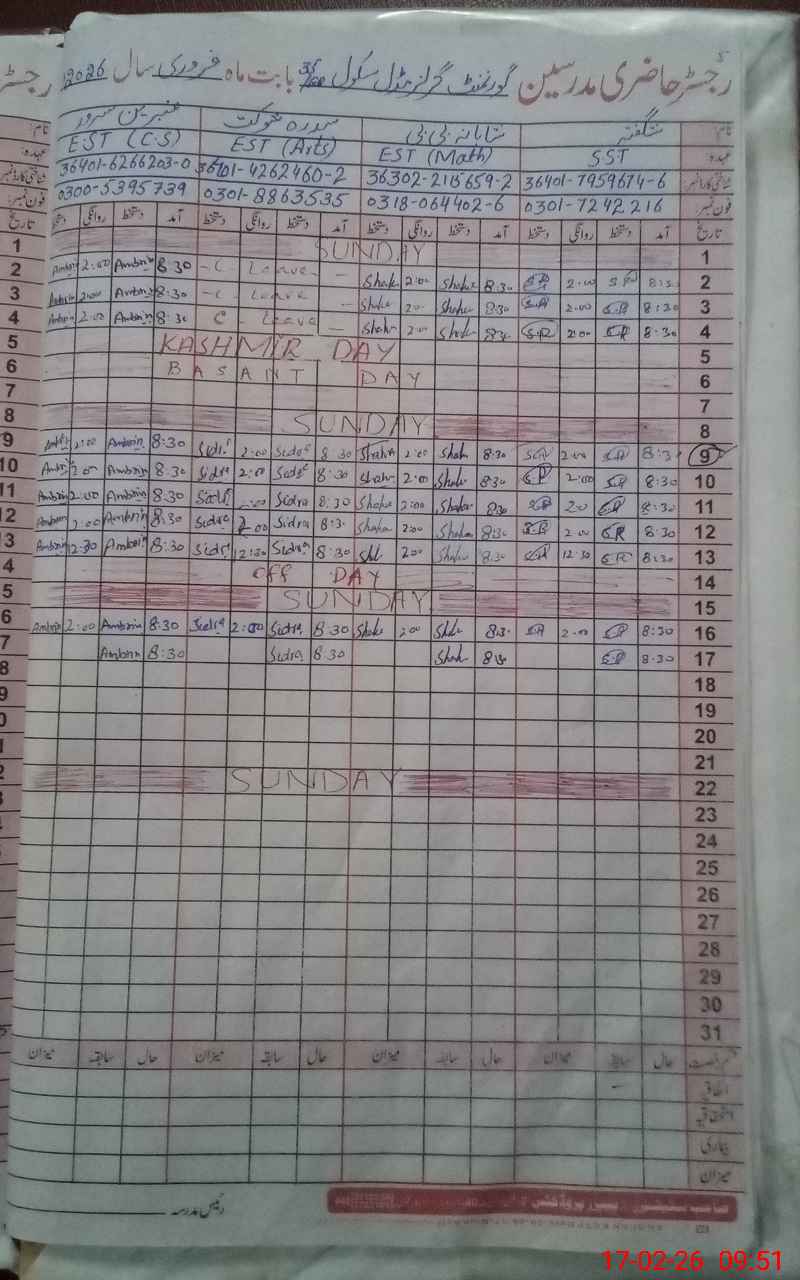 رجسٹر حاضری مدرسین گورنمنٹ گرلز مڈل سکول بابت ماہ فروری سال 2026
نام: شگفتہ شاہانہ بی بی سدرہ شوکت عنبرین سرور
عہدہ: SST EST (Math) EST (Arts) EST (C.S)
شناختی کارڈ نمبر: 36401-7959674-6 36302-2115659-2 36401-4262460-2 36401-6266203-0
فون نمبر: 0301-7242216 0318-064402-6 0301-8863535 0300-5395739
تاریخ آمد دستخط روانگی دستخط آمد دستخط روانگی دستخط آمد دستخط روانگی دستخط آمد دستخط روانگی دستخط
1 SUNDAY 1
2 2:00 Ambrin 8:30 - C Leave - Shah 2:00 Shaha 8:30 SR 2:00 SR 8:30 2
3 Ambrin 2:00 Ambrin 8:30 - C Leave - Shaha 2:00 Shaha 8:30 SR 2:00 SR 8:30 3
4 Ambrin 2:00 Ambrin 8:30 C - Leave - Shahn 2:00 Shah 8:30 SR 2:00 SR 8:30 4
5 KASHMIR DAY 5
6 BASANT DAY 6
7 7
8 SUNDAY 8
9 2:00 Ambrin 8:30 Sidra 2:00 Sidra 8:30 Shahn 2:00 Shah 8:30 SR 2:00 SR 8:30 9
10 Ambrin 2:00 Ambrin 8:30 Sidra 2:00 Sidra 8:30 Shahn 2:00 Shah 8:30 SR 2:00 SR 8:30 10
11 Ambrin 2:00 Ambrin 8:30 Sidra 2:00 Sidra 8:30 Shaha 2:00 Shaha 8:30 SR 2:00 SR 8:30 11
12 Ambrin 2:00 Ambrin 8:30 Sidra 2:00 Sidra 8:30 Shaha 2:00 Shaha 8:30 SR 2:00 SR 8:30 12
13 Ambrin 12:30 Ambrin 8:30 Sidra 12:30 Sidra 8:30 2:00 Shaha 8:30 SR 12:30 SR 8:30 13
4 Off DAY 14
5 SUNDAY 15
6 Ambrin 2:00 Ambrin 8:30 Sidra 2:00 Sidra 8:30 Shaha 2:00 8:30 SR 2:00 SR 8:30 16
7 Ambrin 8:30 Sidra 8:30 Shah 8:30 SR 8:30 17
8 18
9 19
0 20
1 21
2 SUNDAY 22
3 23
24
25
26
27
28
29
30
31
قسم رخصت حال سابقہ میزان حال سابقہ میزان حال سابقہ میزان حال سابقہ میزان
اتفاقیہ
استحقاقیہ
بیماری
میزان
رئیس مدرسہ
17-02-26 09:51